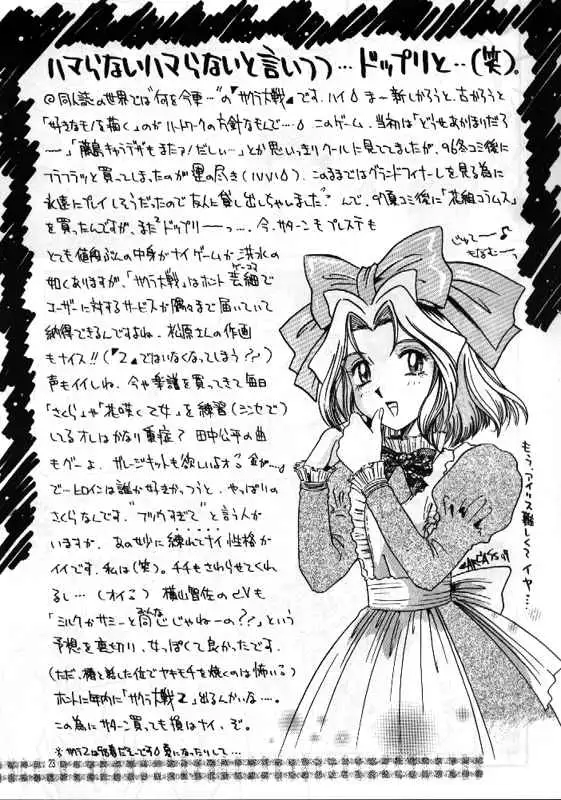 ハマらないハマらないと言いつつ…ドップリと…(笑)。
◎同人誌の世界では"何を今更…"の『サクラ大戦』です、ハイ◊ ま〜新しかろうと古かろうと
「好きなモノを描く」のが の方針なもんで…◊ このゲーム、当初は「どうせあかほりだろ
ー」「藤島キャラデザもまたァ!だしぃ…」とか思いっきりクールに見てましたが、'96冬コミ後に
フラフラッと買ってしまったのが運の尽き(IVVI◊) このままではグランドフィナーレを見る為に
永遠にプレイしそうだったので友人に貸し出しちゃいました んで、'97夏コミ後に『花組コラムス』
を買ったんですが、またドップリーーっ…。今、サターンもプレステも
とても値段ぶんの中身がナイゲームが洪水の
如くありますが、『サクラ大戦』はホント芸細で
ユーザーに対するサービスが隅々まで届いていて
納得できるんですよね。松原さんの作画
もナイス!!(『2』ではいなくなってしまう??)
声もイイしね。今や楽譜を買ってきて毎日
「さくら」や「花咲く乙女」を練習(シンセで)
してるオレはかなり重症? 田中公平の曲
もグーよ。ガレージキットも欲しいよオ〜 金が…
で…ヒロインは誰が好きかっつうと、やっぱりの
さくらなんです。"ブリッ すぎて"と言う人が
いますが、あの妙に練れてナイ性格が
イイです。私は(笑)。チチもさわらせてくれ
るし…(オイこ) 横山智佐のCVも
「ミルクがサミーと同じじゃねーの??」という
予想を裏切り、女っぽくて良かったです。
(ただ、 と話した位でヤキモチを焼くのは怖いゐ)
ホントに年内に『サクラ大戦2』出るんかいな…。
この為にサターン買っても損はナイ、ぞ。
※サクラ2は です◊ 夏になったりして…
じゅてーむ♪
もなむーっ
もう、アイリス難しくてイヤ…
23